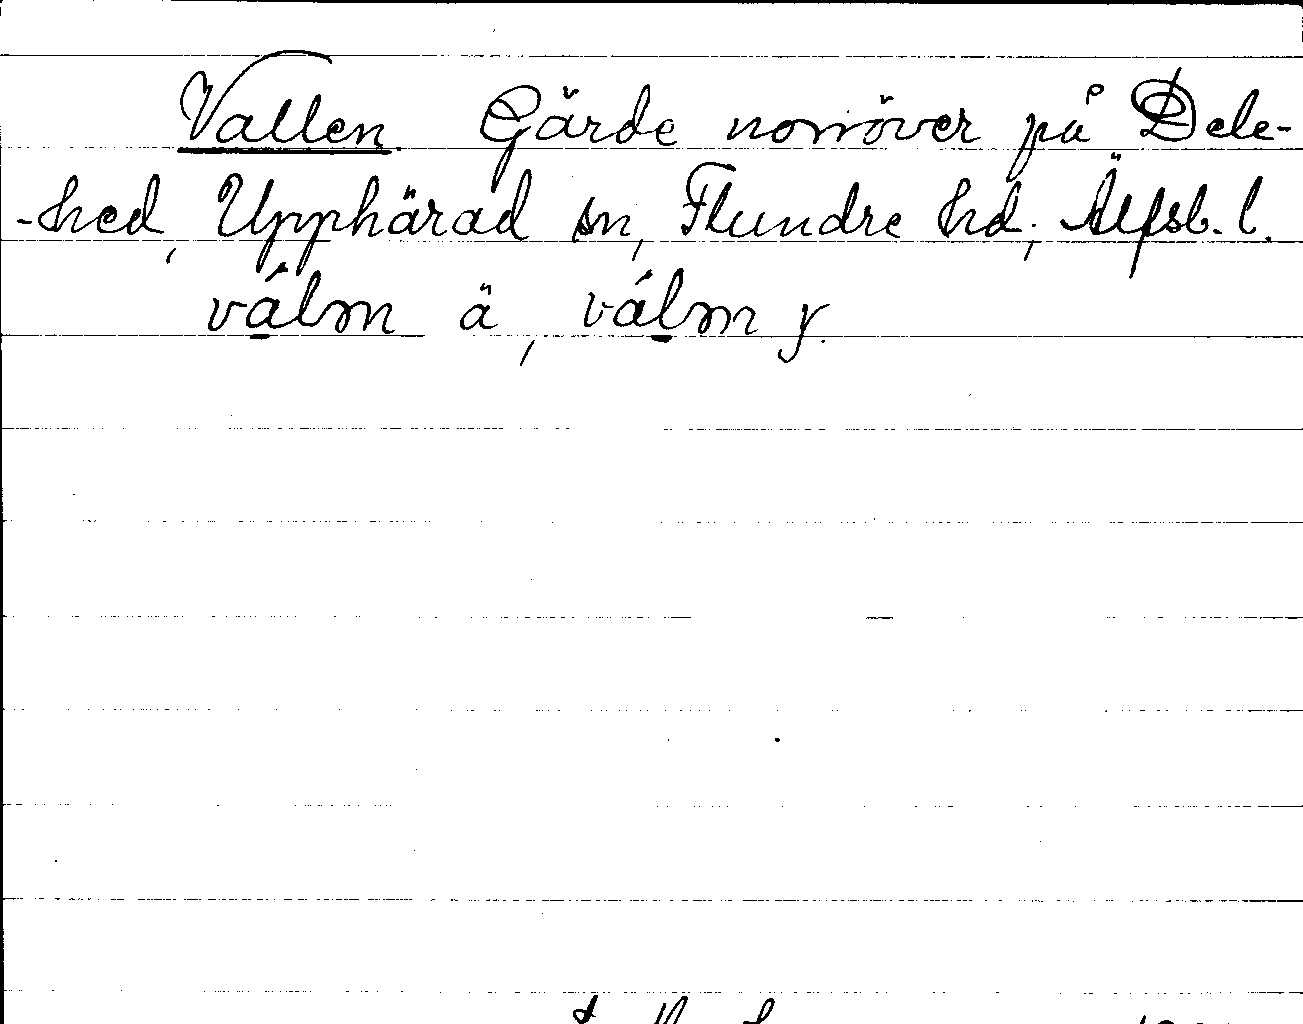 Vallen. Gärde norröver på Dele-
-hed, Upphärad sn, Flundre hd, Älfsb. l.
válm ä, válm y.